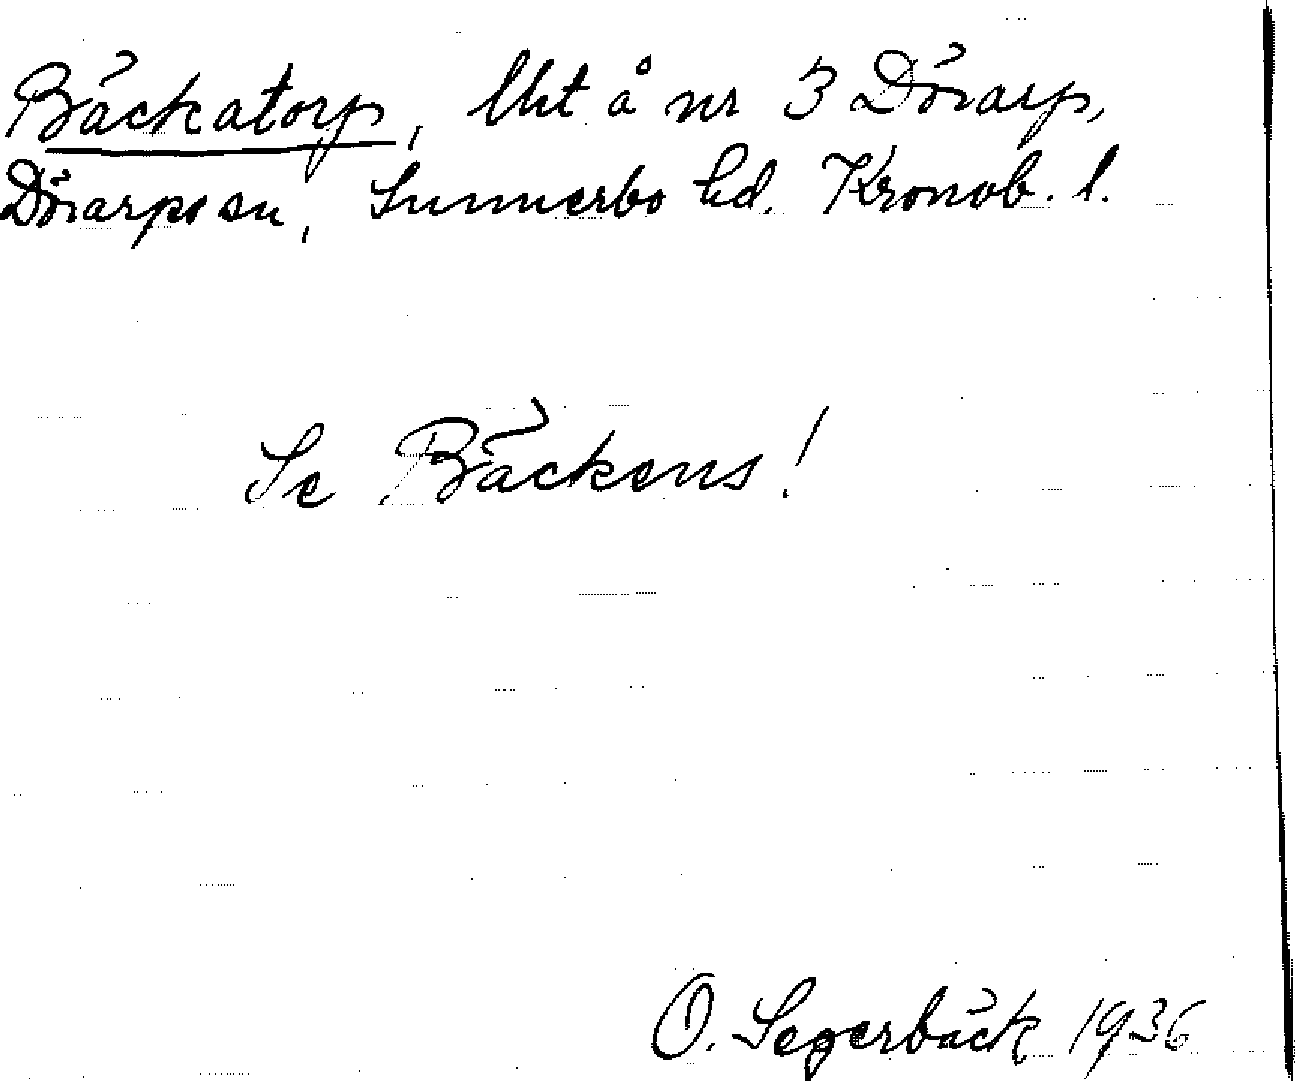 Bäckatorp, lht å nr 3 Dörarp,
Dörarps sn, Sunnerbo hd. Kronob. l.
Se Bäckens!
O. Segerbäck 1936